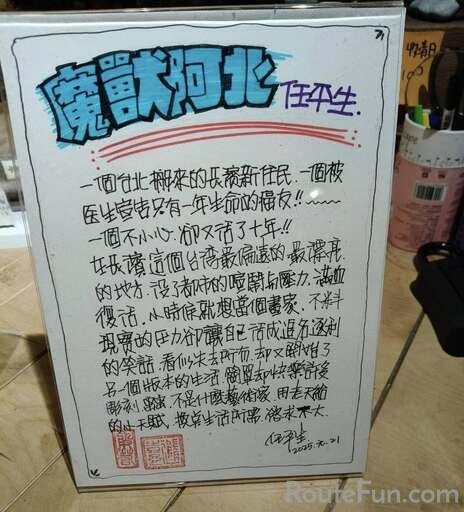 魔獸阿北 任平生.
一個台北搬來的長濱新住民.一個被
医生宣告只有一年生命的癌友!!
一個不小心.卻又活了十年!!
在長濱這個台湾最偏遠的最漂亮
的地方.沒了都市的喧鬧与壓力.滿血
復活.小時候就想當個畫家.不料
現實的压力卻讓自己活成追名逐利
的笑話.看似失去所有.卻又開始了
另一個版本的生活.簡單卻快樂
彫刻.不是什麼藝術家.用老天給
的小天賦.換点生活所需.猪求不大.
任平生
2025.21
100
RouteFun.com